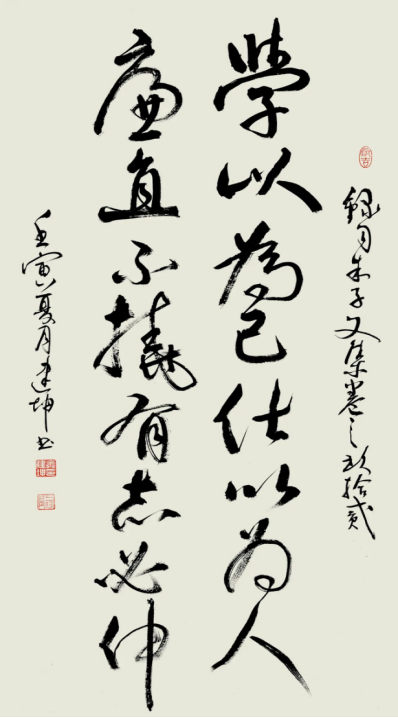 錄自朱子文集卷之玖拾貳
學以為己仕以为人
廉直不撓有志必伸
壬寅夏月建坤书